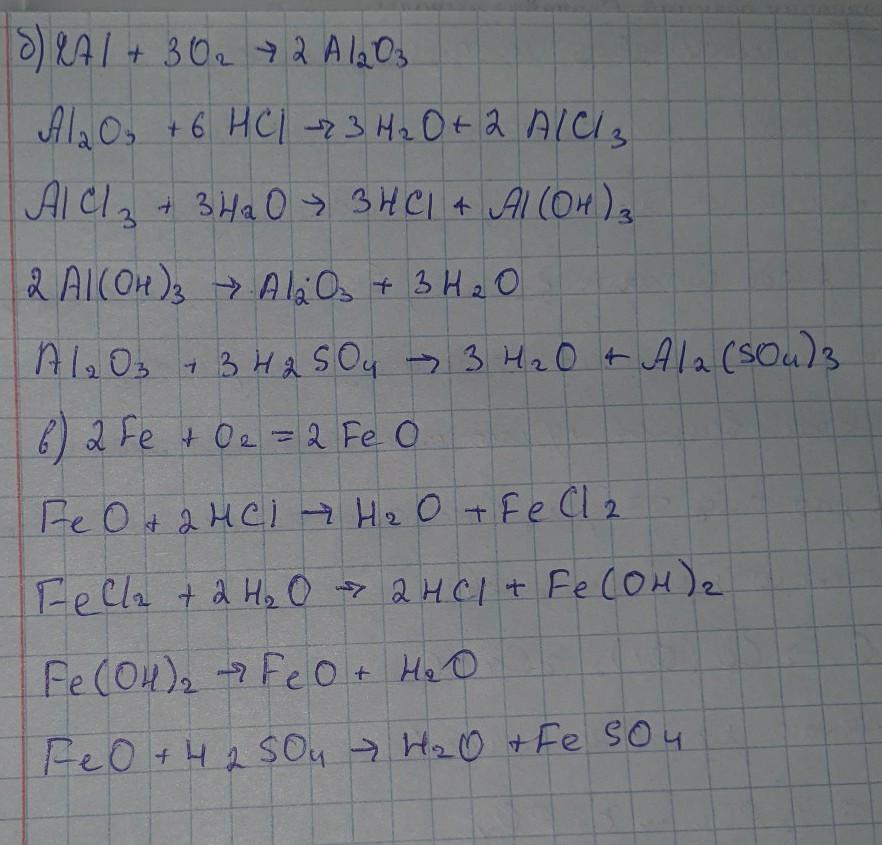 б) 2Al + 3O₂ → 2 Al₂O₃
Al₂O₃ + 6 HCl → 3 H₂O + 2 AlCl₃
AlCl₃ + 3H₂O → 3HCl + Al(OH)₃
2 Al(OH)₃ → Al₂O₃ + 3 H₂O
Al₂O₃ + 3 H₂SO₄ → 3 H₂O + Al₂(SO₄)₃
в) 2 Fe + O₂ = 2 FeO
FeO + 2HCl → H₂O + FeCl₂
FeCl₂ + 2H₂O → 2HCl + Fe(OH)₂
Fe(OH)₂ → FeO + H₂O
FeO + H₂SO₄ → H₂O + FeSO₄